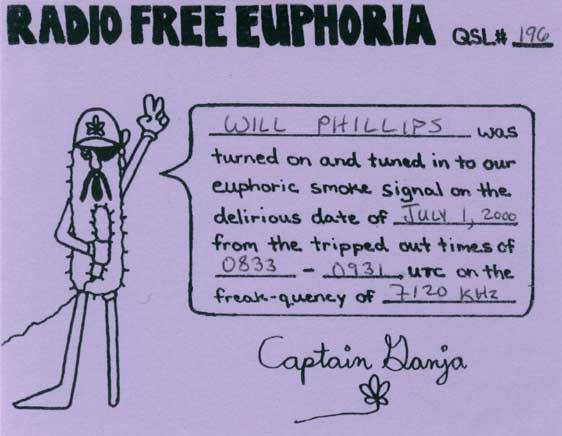 RADIO FREE EUPHORIA QSL# 196
WILL PHILLIPS was
turned on and tuned in to our
euphoric smoke signal on the
delirious date of JULY 1, 2000
from the tripped out times of
0833 - 0931 UTC on the
freak-quency of 7120 KHz
Captain Ganja